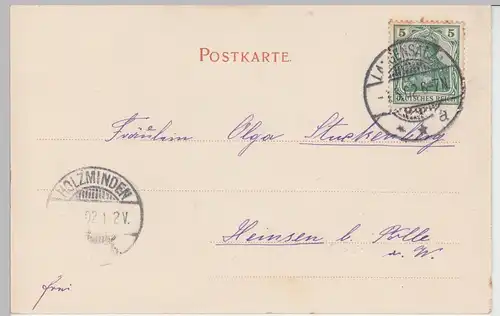 POSTKARTE.
5 5
DEUTSCHES REICH
a
Fräulein Olga Stuckenberg
HOLZMINDEN
02 1 2V.
Heinsen b. Polle
a. W.
frei